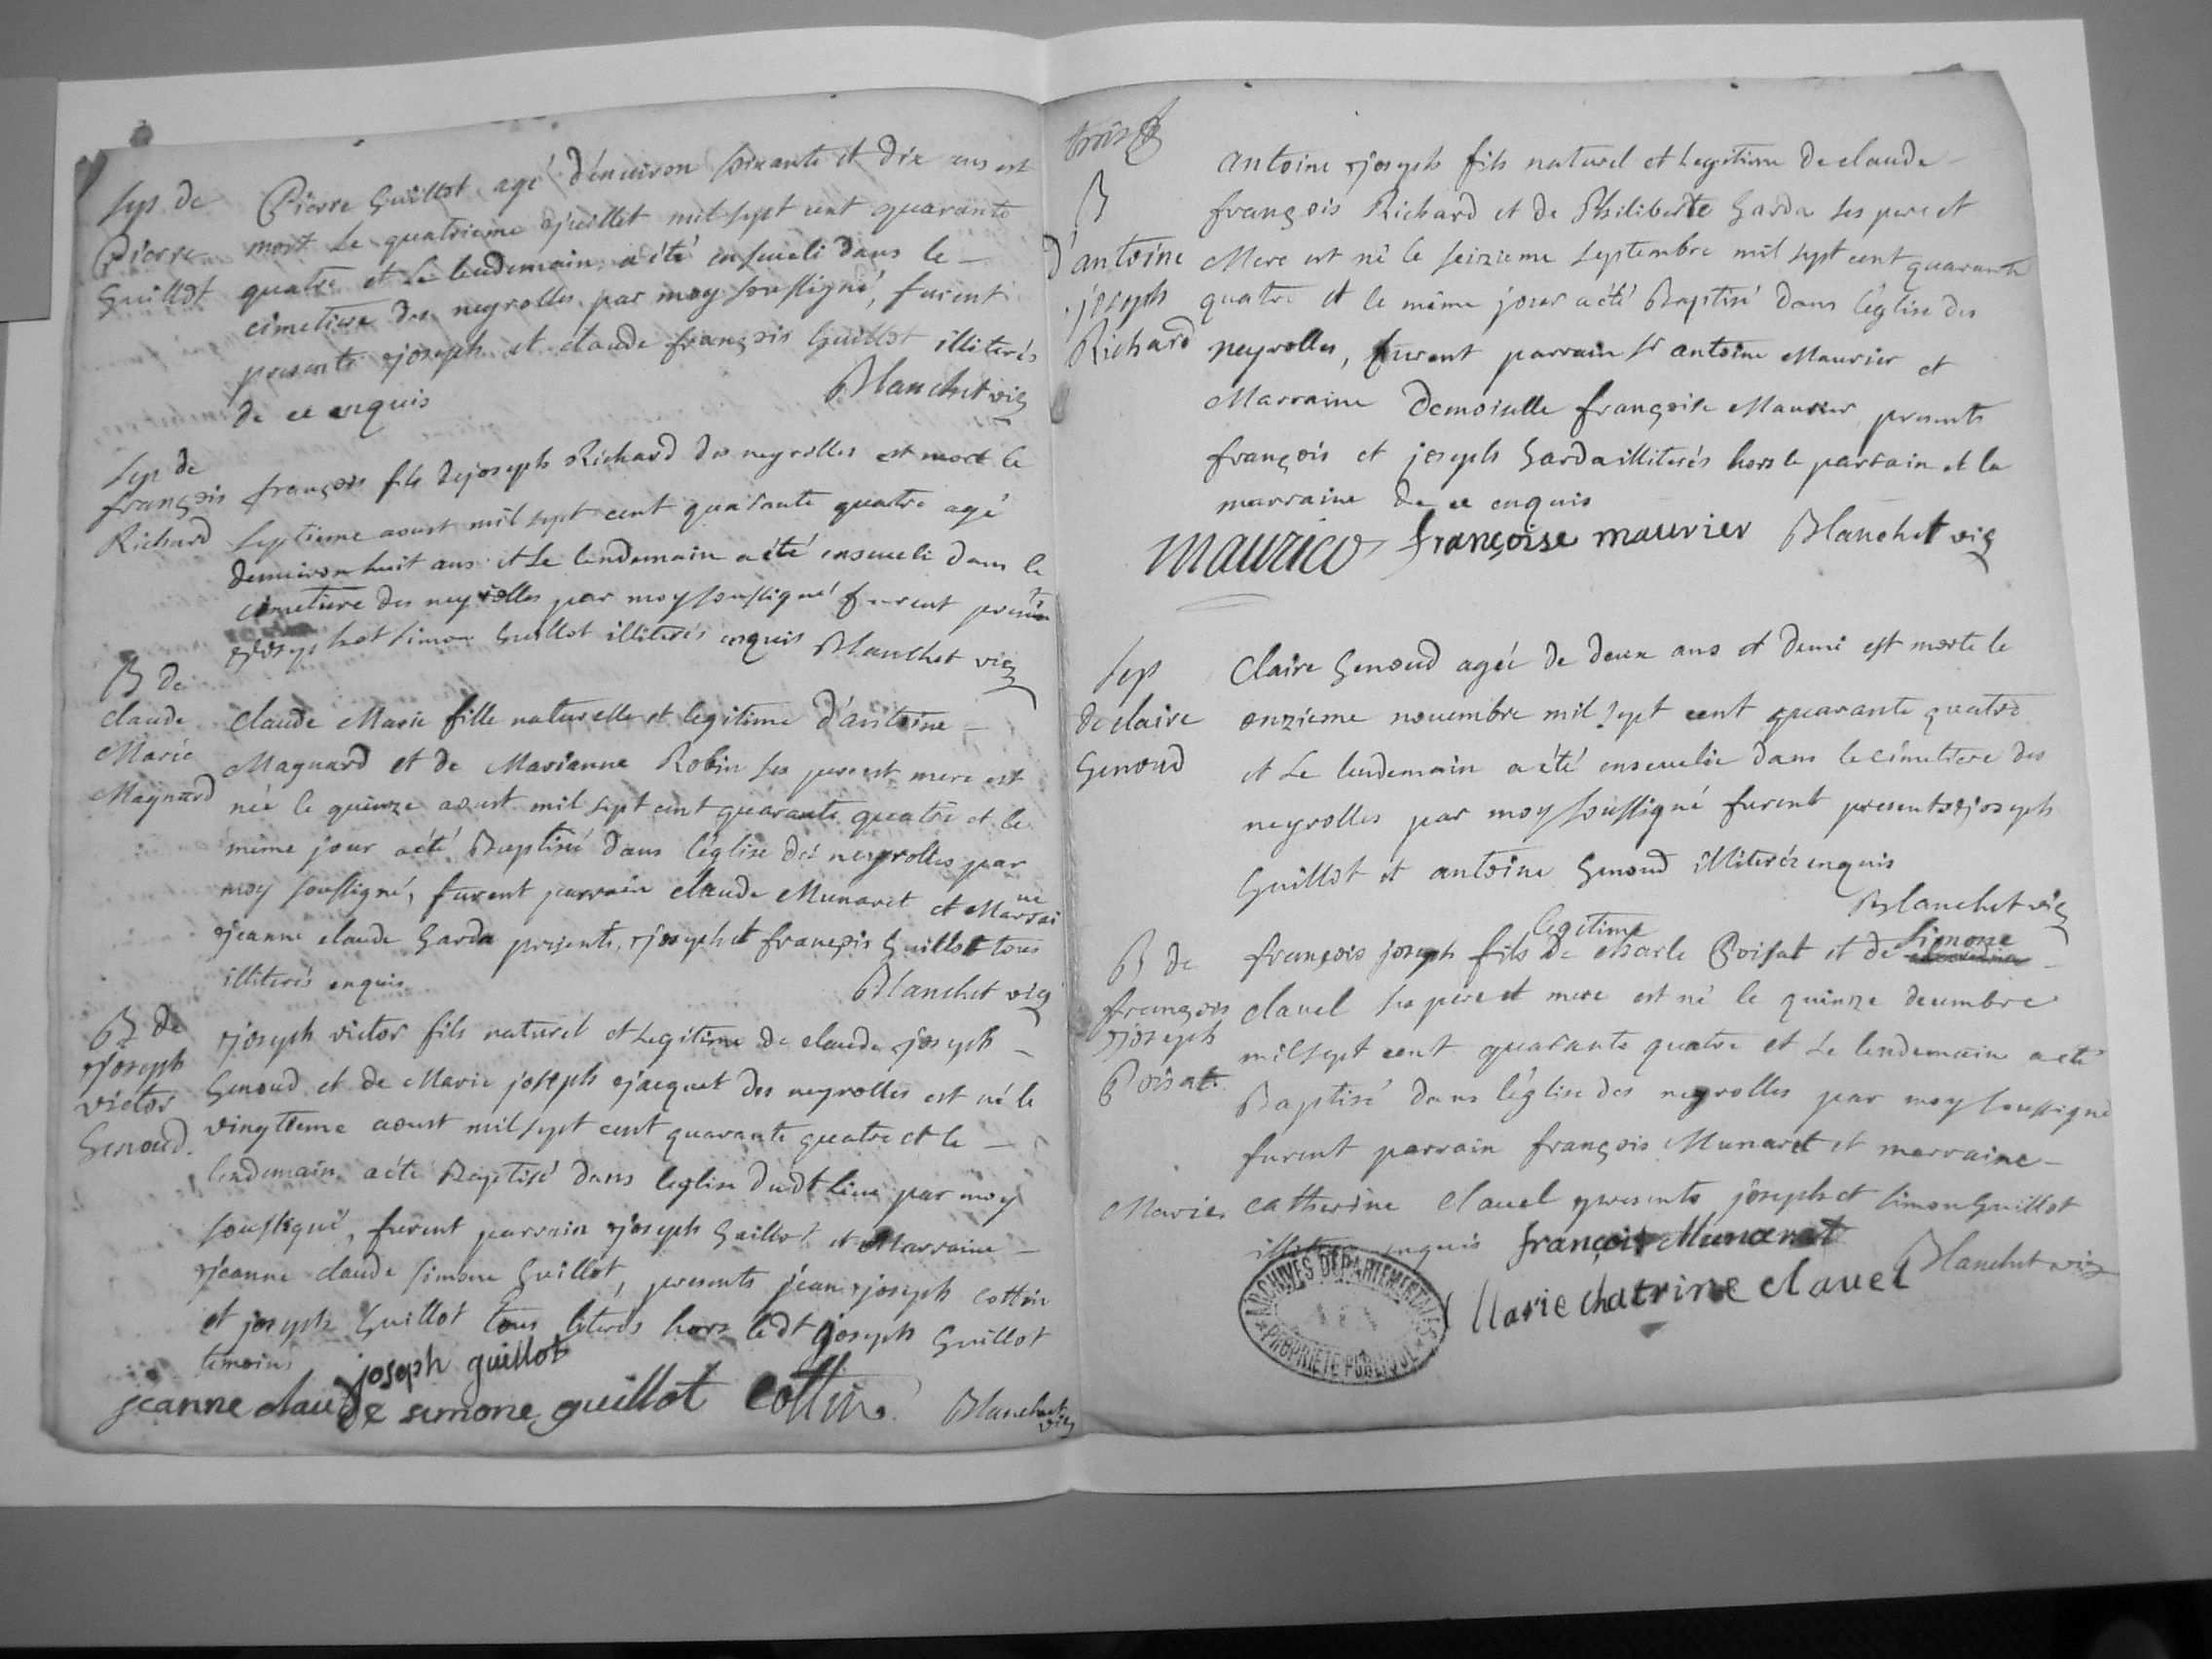 Sep de
Pierre
Guillot
Pierre Guillot agé d'énuiron soixante et dix ans est
mort le quatrieme juillet mil sept cent quarante
quatre et le lendemain a été enseueli dans le -
cimetiere des neyrolles par moy soussigné, furent
presents joseph et claude françois Guillot illiterés
de ce enquis
Blanchet vic
Sep de
françois
Richard
françois fils de joseph Richard des neyrolles est mort le
septieme aoust mil sept cent quarante quatre agé
denuiron huit ans et le lendemain a été enseueli dans le
cimetiere des neyrolles par moy soussigné furent presents
joseph et simon Guillot illiterés enquis Blanchet vic
B de
claude
Marie
Magnard
claude Marie fille naturelle et legitime d'antoine -
Magnard et de Marianne Robin ses pere et mere est
née le quinze aoust mil sept cent quarante quatre et le
même jour a été Baptisée dans l'église des neyrolles par
moy soussigné, furent parrain claude Munaret et Marrai ne
jeanne claude Garda presents, joseph et françois Guillot tous
illiterés enquis
Blanchet vic
B de
joseph
victor
Genoud.
joseph victor fils naturel et legitime de claude joseph -
Genoud et de Marie joseph jacquet des neyrolles est né le
vingtieme aoust mil sept cent quarante quatre et le -
lendemain a été Baptisé dans leglise dudt lieu par moy
soussigné, furent parrain joseph Guillot et Marraine -
jeanne claude simone Guillot, presents jean joseph cottin
et joseph Guillot tous literés hors ledt joseph Guillot
temoins
joseph guillot
jeanne claude simone guillot Cottin
Blanchet vic
trois
B
d'antoine
joseph
Richard
antoine joseph fils naturel et Legitime de claude -
françois Richard et de Philiberte Garda ses pere et
Mere est né le seizieme septembre mil sept cent quarante
quatre et le même jour a été Baptisé dans l'église des
neyrolles, furent parrain sr antoine Maurier et
Marraine Demoiselle françoise Maurier presents
françois et joseph Garda illiterés hors le parrain et la
marraine de ce enquis
françoise maurier Blanchet vic
Sep
de claire
Genoud
Claire Genoud agée de deux ans et demi est morte le
onzieme nouembre mil sept cent quarante quatre
et le lendemain a été enseuelie dans le cimetiere des
neyrolles par moy soussigné furent presents joseph
Guillot et antoine Genoud illiterés enquis
Blanchet vic
B de
françois
joseph
Poisat
françois joseph fils legitime de charle Poisat et de simone -
clauel ses pere et mere est né le quinze decembre
mil sept cent quarante quatre et le lendemain a été
Baptisé dans l'église des neyrolles par moy soussigné
furent parrain françois Munaret et marraine -
Marie catherine clauel presents joseph et simon Guillot
enquis françois Munaret
Blanchet vic
Marie chatrine clauel
ARCHIVES DÉPARTEMENTALES
PROPRIÉTÉ PUBLIQUE